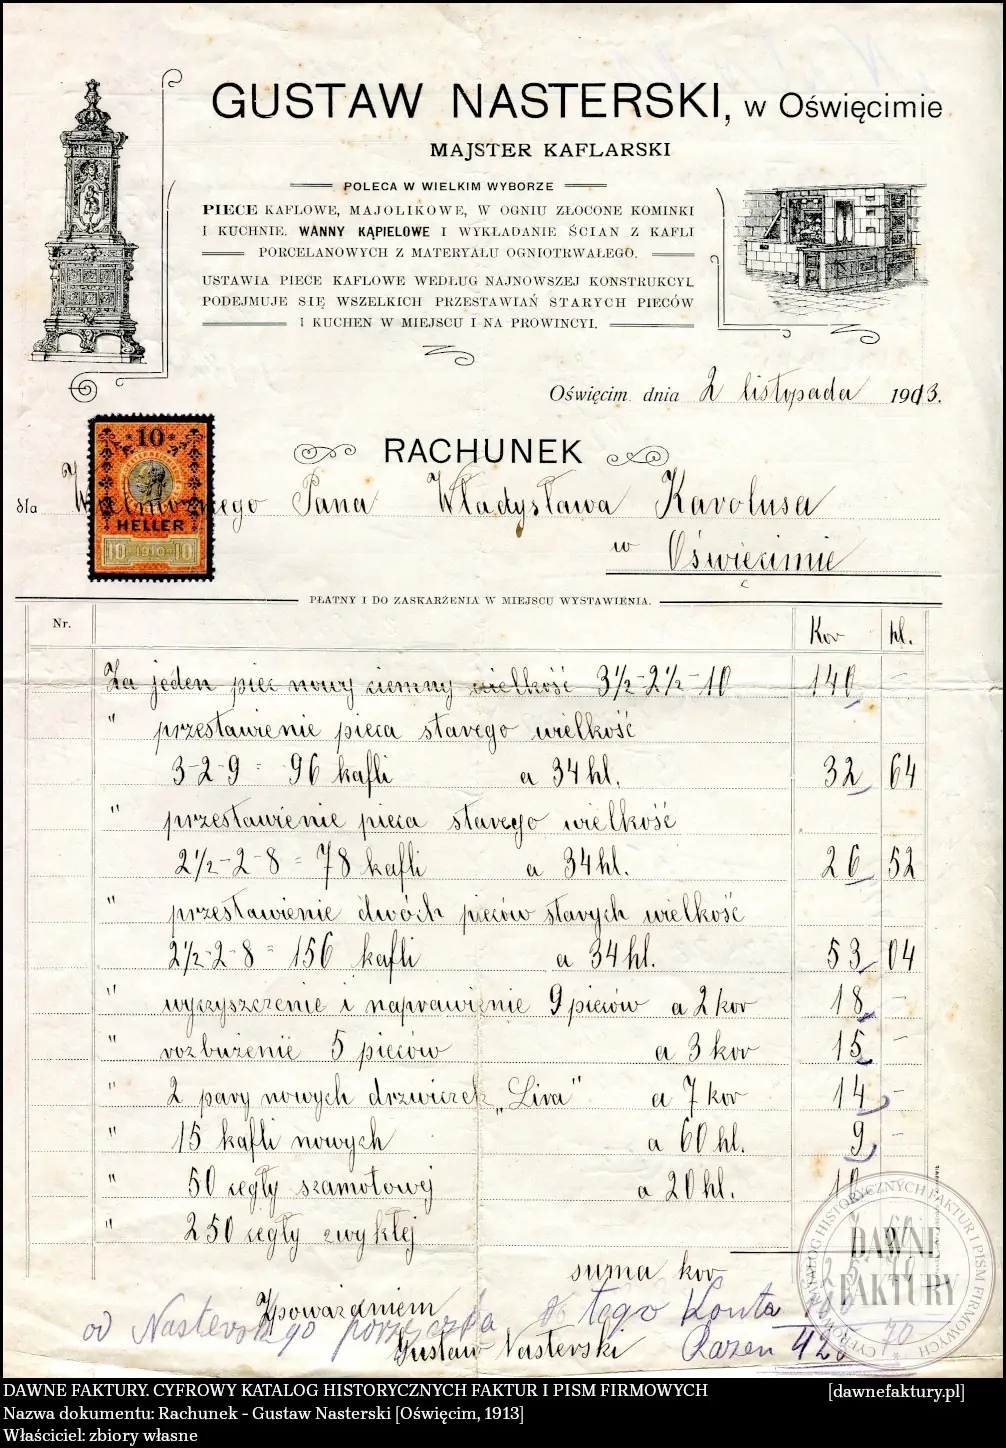 GUSTAW NASTERSKI, w Oświęcimie
MAJSTER KAFLARSKI
POLECA W WIELKIM WYBORZE
PIECE KAFLOWE, MAJOLIKOWE, W OGNIU ZŁOCONE KOMINKI
I KUCHNIE. WANNY KĄPIELOWE I WYKŁADANIE ŚCIAN Z KAFLI
PORCELANOWYCH Z MATERYAŁU OGNIOTRWAŁEGO.
USTAWIA PIECE KAFLOWE WEDŁUG NAJNOWSZEJ KONSTRUKCYI,
PODEJMUJE SIĘ WSZELKICH PRZESTAWIAŃ STARYCH PIECÓW
I KUCHEN W MIEJSCU I NA PROWINCYI.
Oświęcim dnia 2 listopada 1913.
10
HELLER
10 1910 10
RACHUNEK
dla Wielmożnego Pana Władysława Karolusa
w Oświęcimie
PŁATNY I DO ZASKARŻENIA W MIEJSCU WYSTAWIENIA.
Nr. Kor hl.
Za jeden piec nowy ciemny wielkość 3½-2½-10 140 -
" przestawienie pieca starego wielkość
3-2-9 = 96 kafli a 34 hl. 32 64
" przestawienie pieca starego wielkość
2½-2-8 = 78 kafli a 34 hl. 26 52
" przestawienie dwóch pieców starych wielkość
2½-2-8 = 156 kafli a 34 hl. 53 04
" wyczyszczenie i naprawienie 9 pieców a 2 kor 18 -
" rozbużenie 5 pieców a 3 kor 15 -
" 2 pary nowych drzwiczek „Lira" a 7 kor 14 -
" 15 kafli nowych a 60 hl. 9 -
" 50 cegły szamotowej a 20 hl. 10
" 250 cegły zwykłej
suma kor
Z poważaniem
od Nasterskiego pożyczka do tego Konta
Gustaw Nasterski Razem 428 70
DAWNE FAKTURY
CYFROWY KATALOG HISTORYCZNYCH FAKTUR I PISM FIRMOWYCH
DAWNE FAKTURY. CYFROWY KATALOG HISTORYCZNYCH FAKTUR I PISM FIRMOWYCH [dawnefaktury.pl]
Nazwa dokumentu: Rachunek - Gustaw Nasterski [Oświęcim, 1913]
Właściciel: zbiory własne